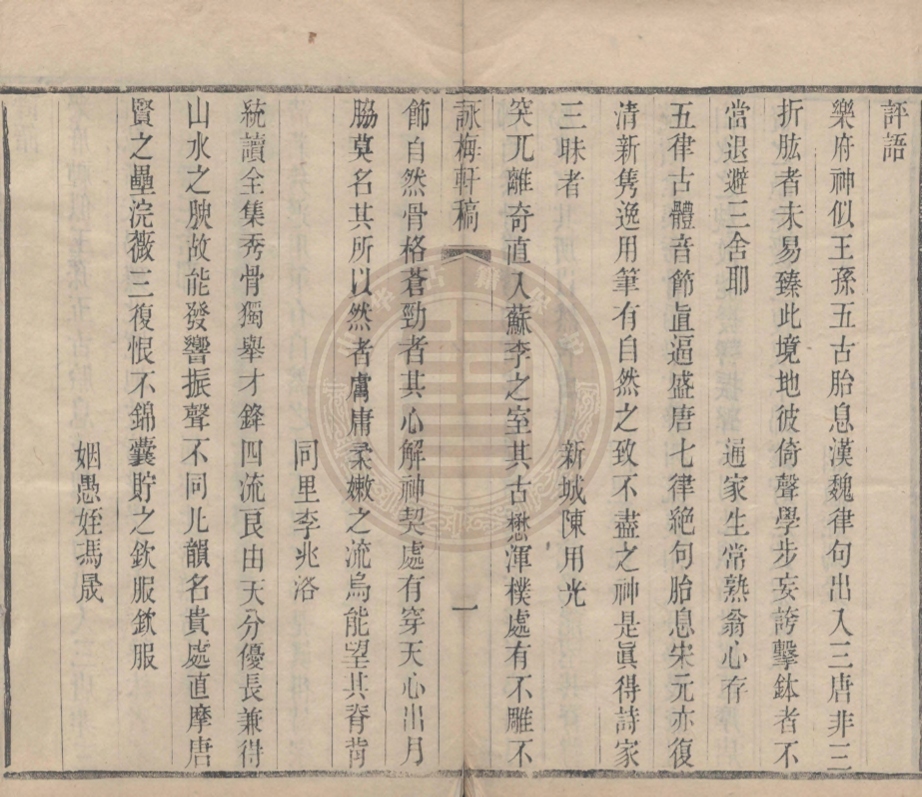 評語
樂府神似王孫五古胎息漢魏律句出入三唐非三
折肱者未易臻此境地彼倚聲學步妄誇擊鉢者不
當退避三舍耶　通家生常熟翁心存
五律古體音節眞逼盛唐七律絕句胎息宋元亦復
清新雋逸用筆有自然之致不盡之神是眞得詩家
三昧者　新城陳用光
突兀離奇直入蘇李之室其古懋渾樸處有不雕不
詠梅軒稿　一
飾自然骨格蒼勁者其心解神契處有穿天心出月
脇莫名其所以然者膚庸柔嫩之流烏能望其脊背
同里李兆洛
統讀全集秀骨獨舉才鋒四流良由天分優長兼得
山水之腴故能發響振聲不同凡韻名貴處直摩唐
賢之壘浣薇三復恨不錦囊貯之欽服欽服
姻愚姪馮晟